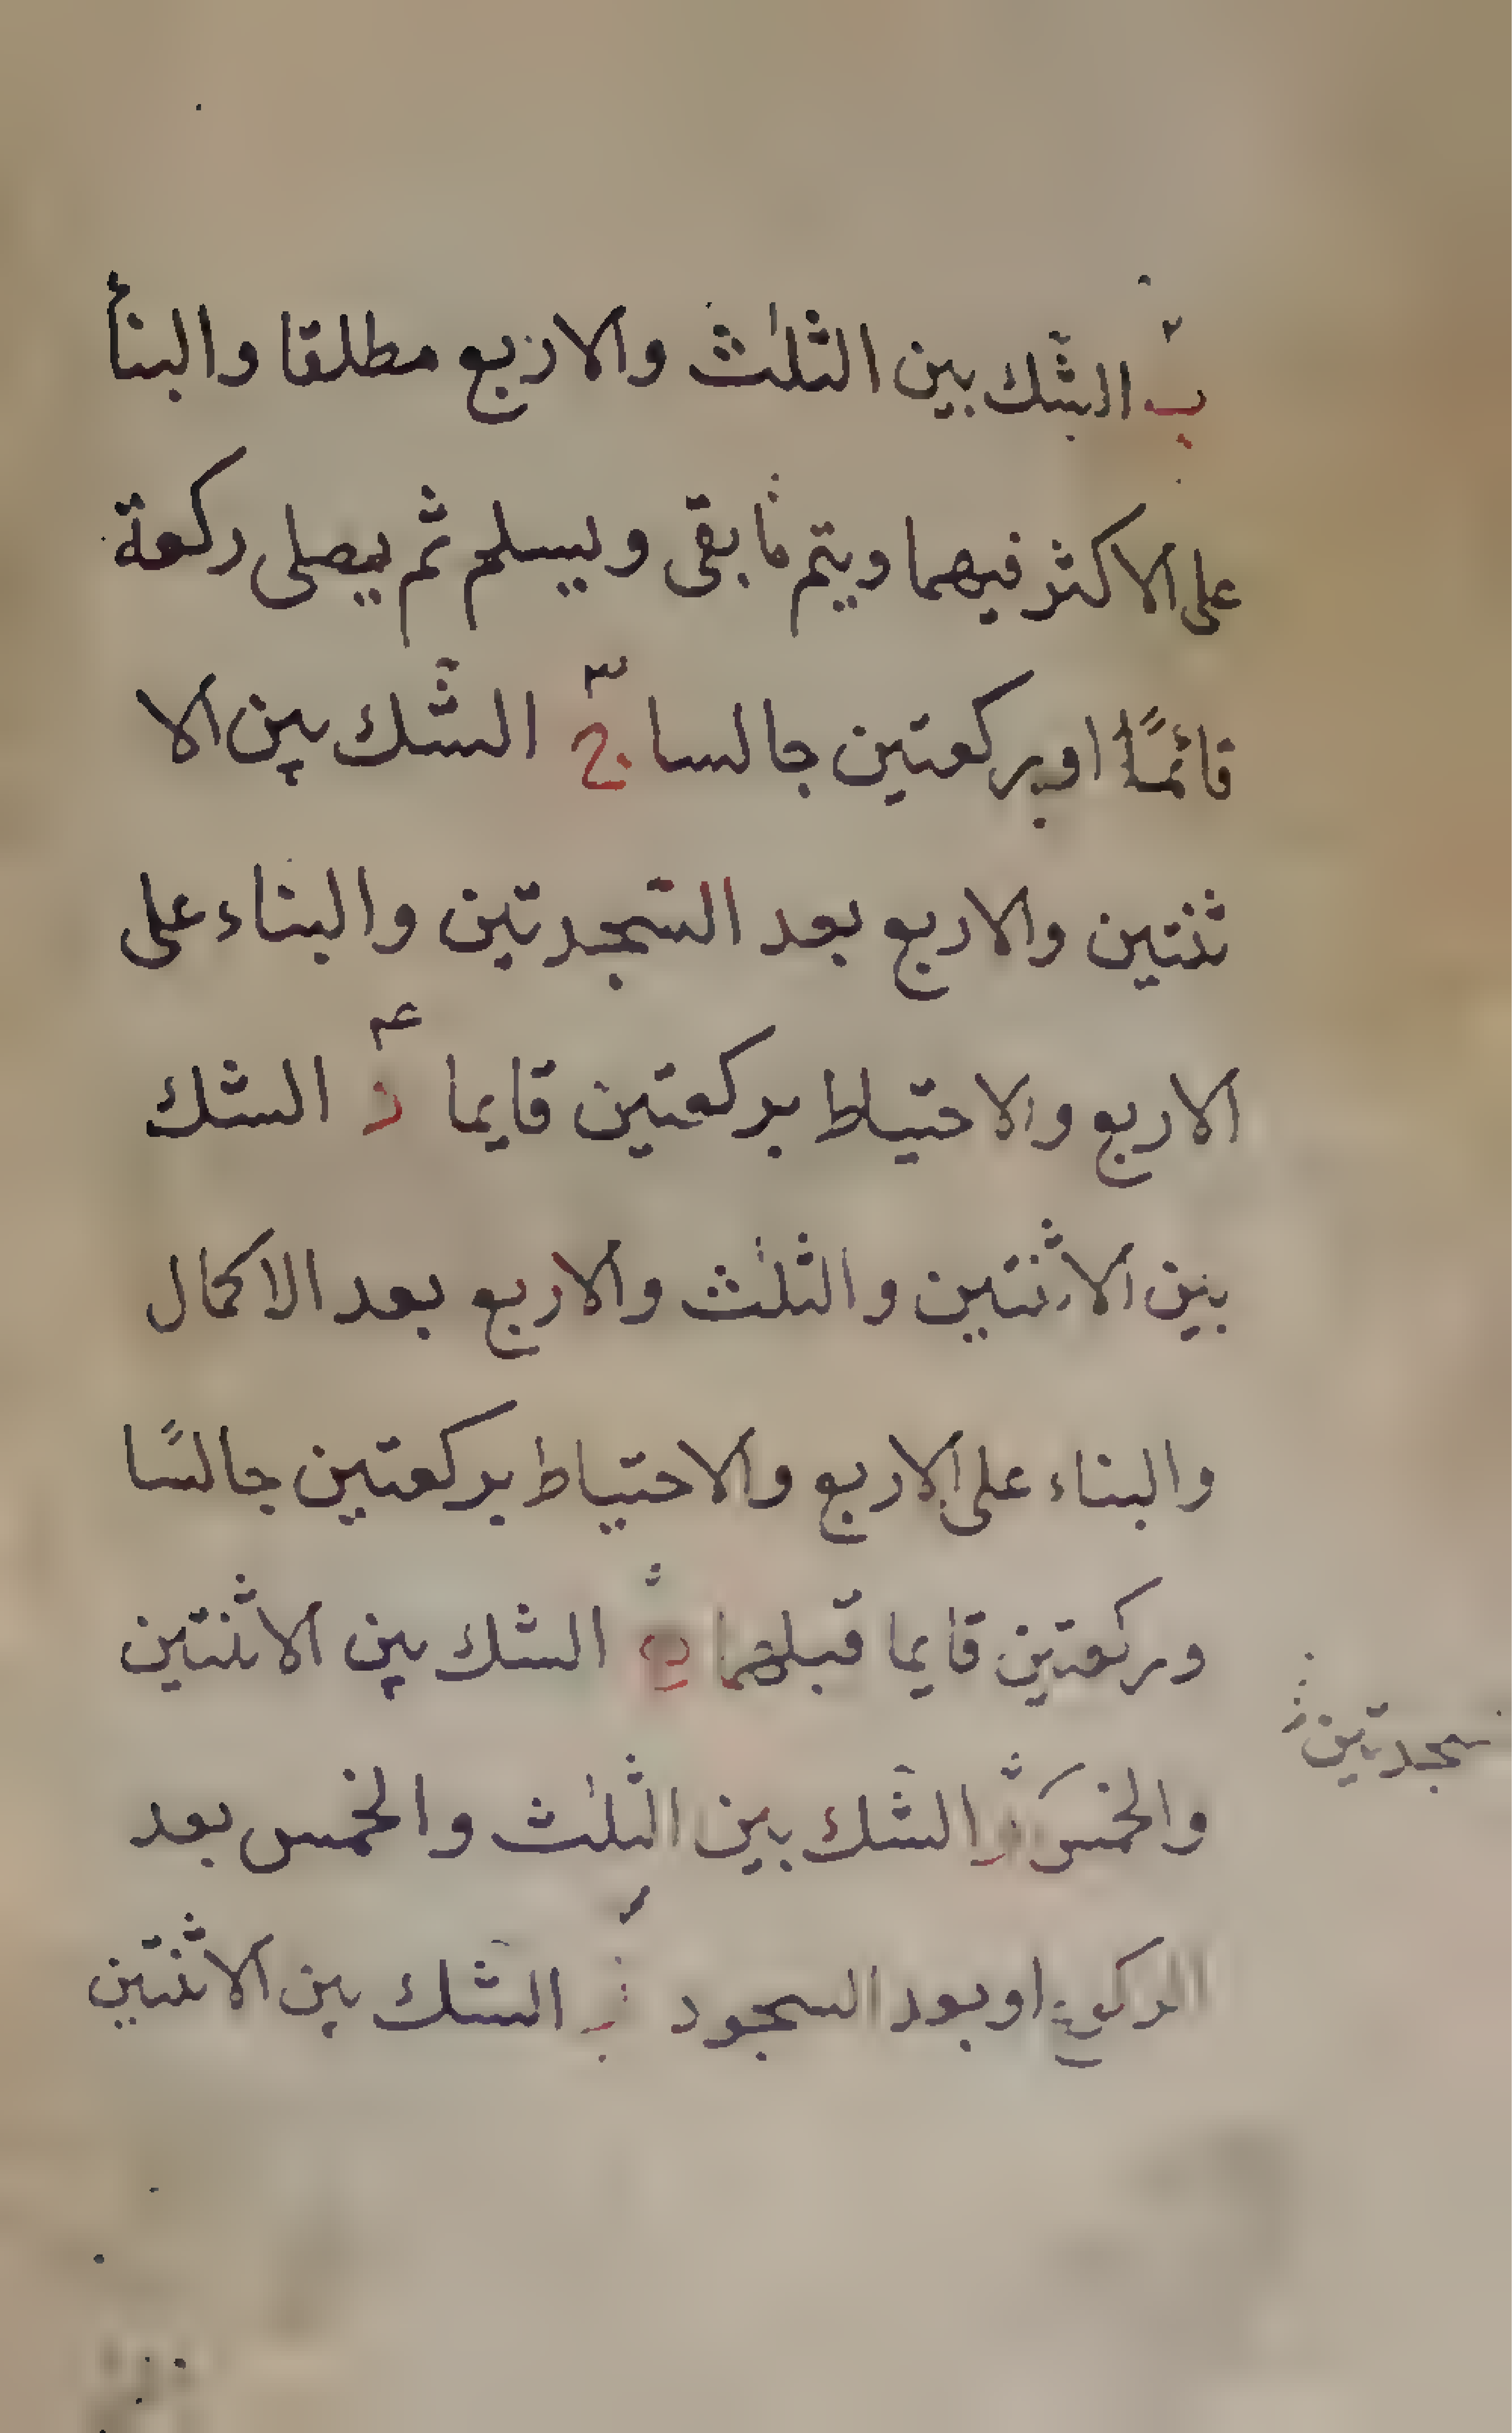 ب الشك بين الثلث والاربع مطلقا والبنأ
على الاكثر فيهما ويتم ما بقى ويسلم ثم يصلى ركعة
قائمًا او بركعتين جالسا ج الشك بين الا
ثنتين والاربع بعد السجدتين والبناء على
الاربع والاحتياط بركعتين قايما د الشك
بين الاثنتين والثلث والاربع بعد الاكمال
والبناء على الاربع والاحتياط بركعتين جالسًا
وركعتين قايما قبلهما ه الشك بين الاثنتين
سجدتين
والخمس و الشك بين الثلث والخمس بعد
الركوع او بعد السجود الشك بين الاثنتين